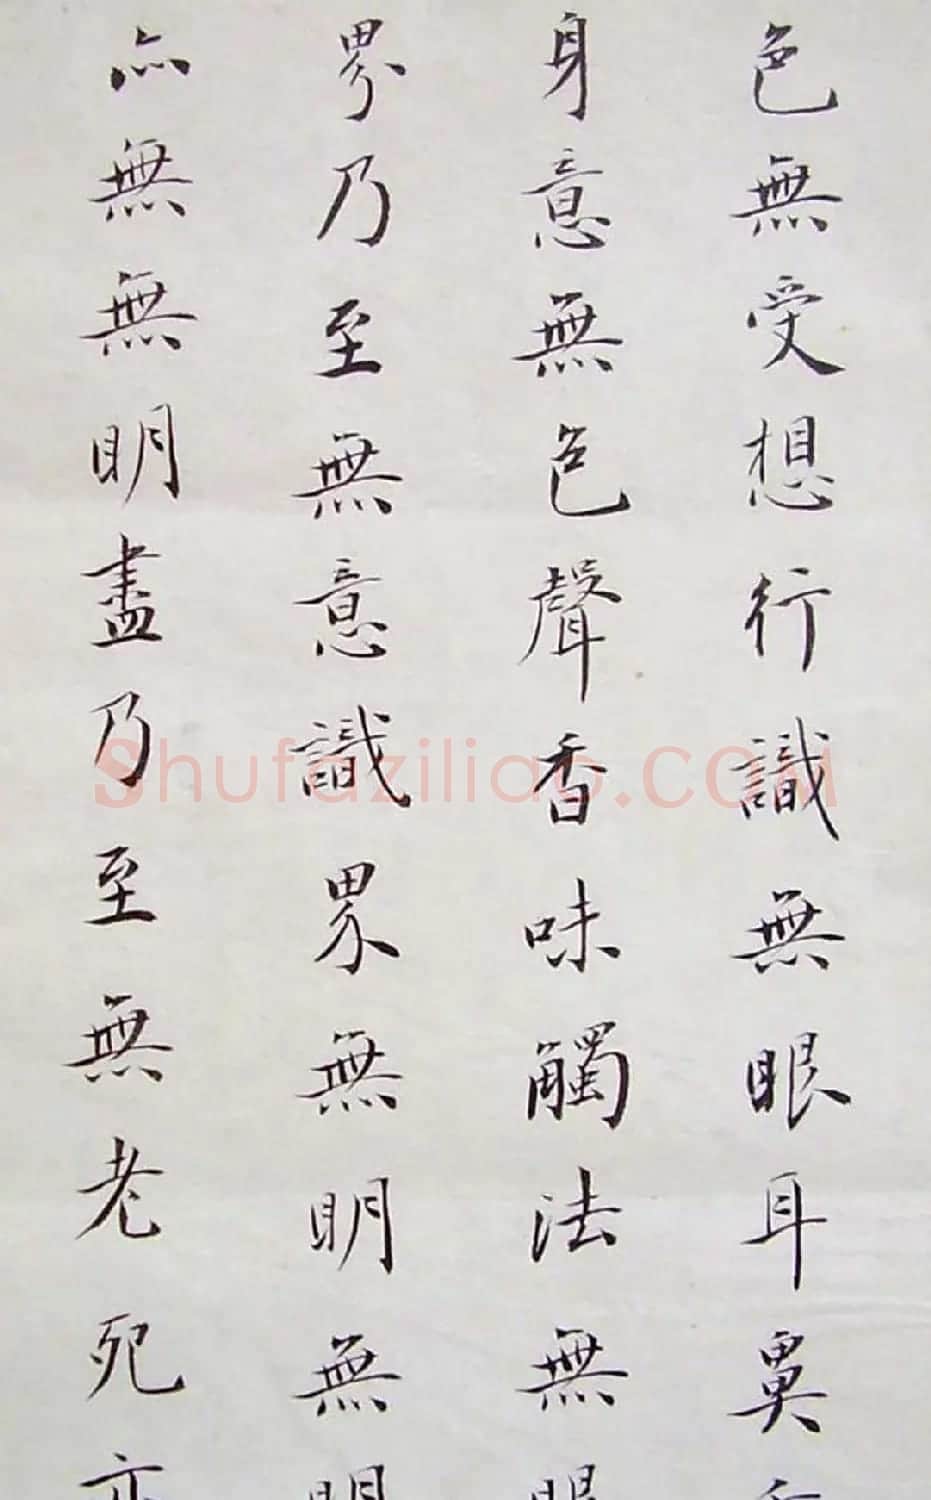 色無受想行識無眼耳鼻
身意無色聲香味觸法無眼
界乃至無意識界無明無明
亦無無明盡乃至無老死亦
Shufaziliao.com